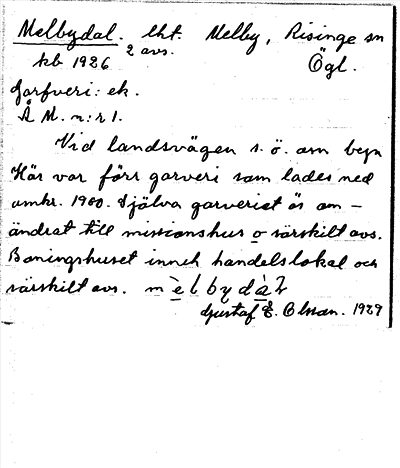 Melbydal. lht. Melby, Risinge sn
kb 1926 2 avs. Ögl.
Garfveri: ek.
Å M. n:r 1.
Vid landsvägen s. ö. om byn
Här var förr garveri som lades ned
omkr. 1900. Själva garveriet är om-
ändrat till missionshus o särskilt avs.
Boningshuset inneh handelslokal och
särskilt avs. mèlbydàɫ
Gustaf E. Olsson. 1929